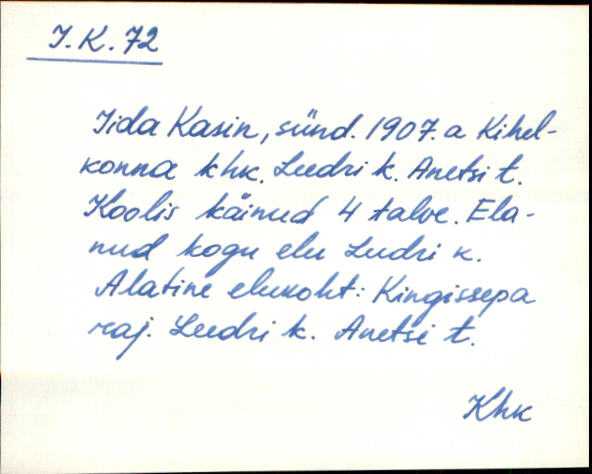 I.K.72
Iida Kasin, sünd. 1907. a Kihel-
konna khk. Leedri k. Anetsi t.
Koolis käinud 4 talve. Ela-
nud kogu elu Leedri k.
Alatine elukoht: Kingissepa
raj. Leedri k. Anetsi t.
Khk